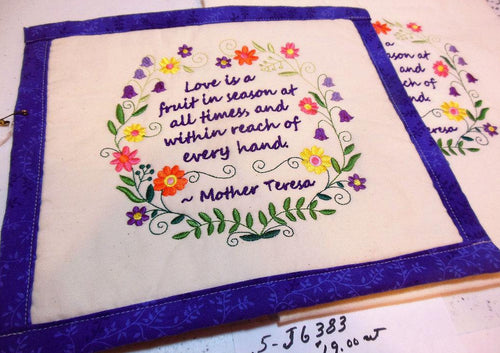 Love is a
fruit in season at
all times, and
within reach of
every hand.
~ Mother Teresa
is a
eason at
and
reach of
hand.
Teresa
5-J6383
$19.00